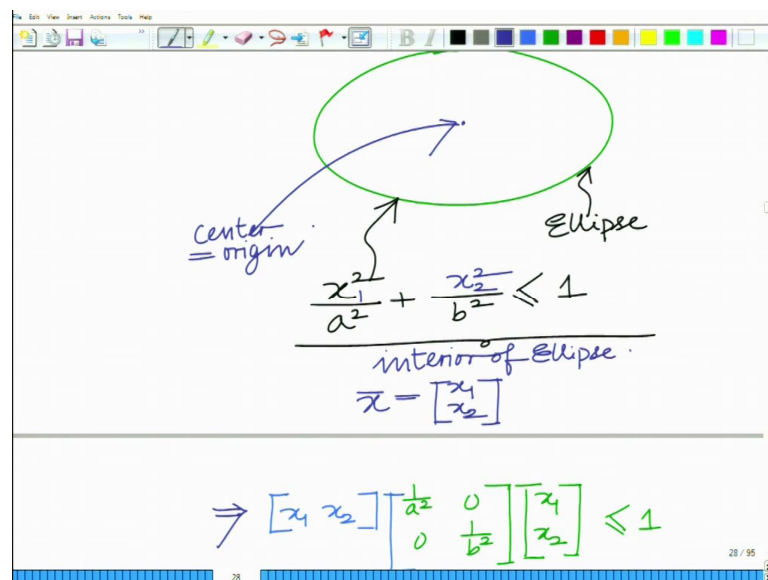 File Edit View Insert Actions Tools Help
B I
center = origin
Ellipse
x₁²/a² + x₂²/b² ≤ 1
interior of Ellipse.
x̄ = [x₁ x₂]
⇒ [x₁ x₂] [1/a² 0 0 1/b²] [x₁ x₂] ≤ 1
28 / 95
28